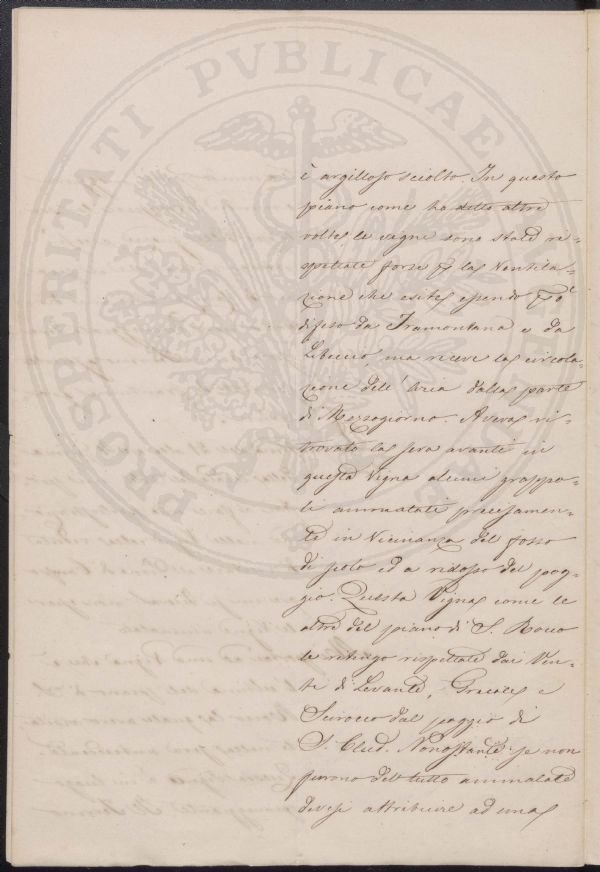 PROSPERITATI PVBLICAE
è argilloso sciolto. In questo
piano come ha detto altre
volte, le vigne sono state ri-
spettate forse p la Ventila-
zione che esiste, essendo
difeso da Tramontana e da
Libeccio, ma riceve la circola-
zione dell'aria dalla parte
di Mezzogiorno. Aveva ri-
trovato la sera avanti in
questa Vigna alcuni grappo-
li ammalati precisamen-
te in vicinanza del fosso
di scolo ed a ridosso del pog-
gio. Questa Vigna come le
altre del piano di S. Rocco
le ritengo rispettate dai Ven-
ti di Levante, Grecale e
Scirocco dal poggio di
S. Nonostante se non
furono del tutto ammalate
devesi attribuire ad una